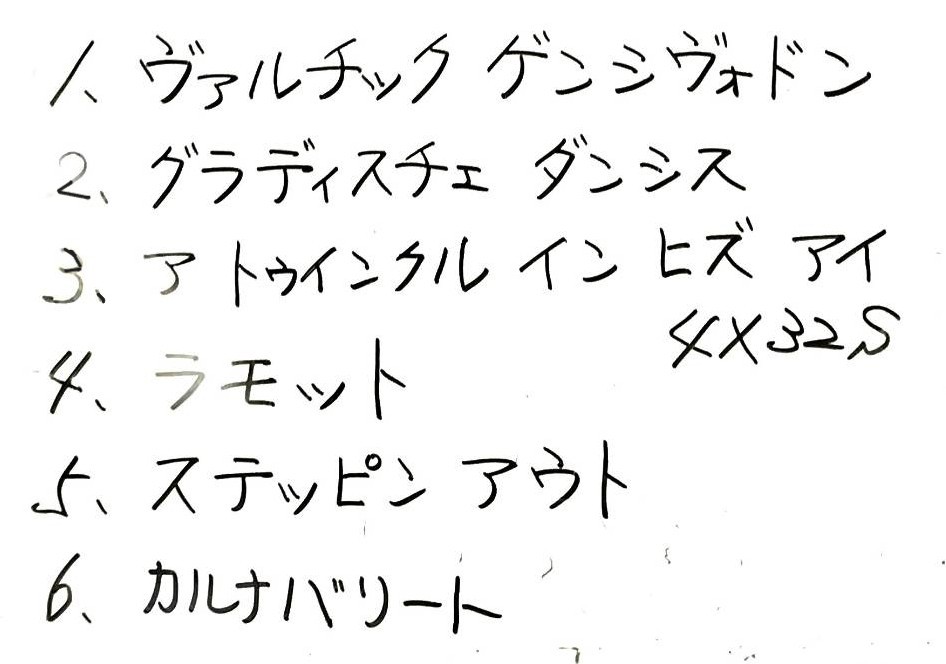 1、ヴァルチック ゲンシヴォドン
2、グラディスチェ ダンシス
3、ア トゥインクル イン ヒズ アイ
4×32S
4、ラモット
5、ステッピン アウト
6、カルナバリート